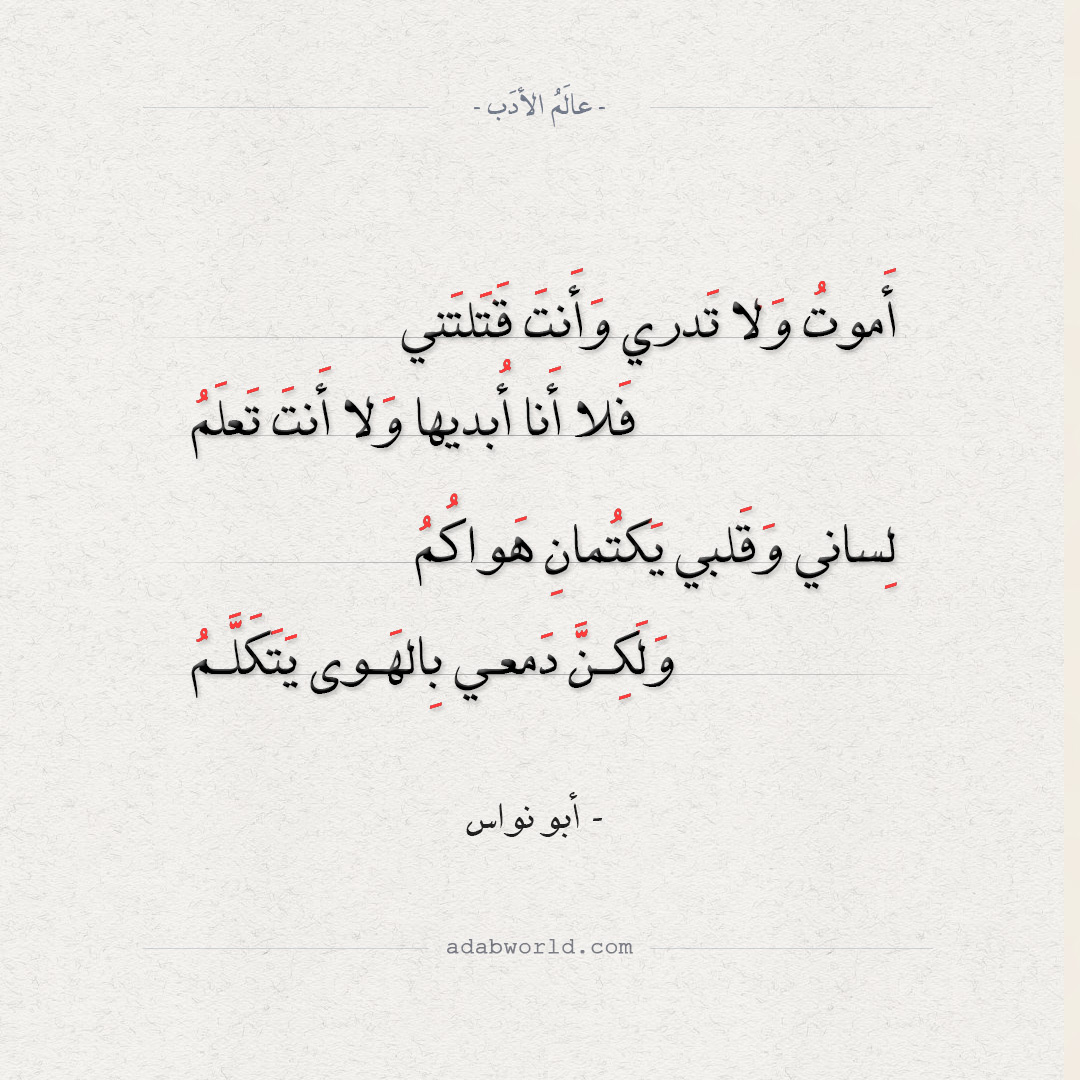 - عالَمُ الأدَب -
أَموتُ وَلا تَدري وَأَنتَ قَتَلتَني
فَلا أَنا أُبديها وَلا أَنتَ تَعلَمُ
لِساني وَقَلبي يَكتُمانِ هَواكُمُ
وَلَكِـنَّ دَمعـي بِالهَـوى يَتَكَلَّـمُ
- أبو نواس
adabworld.com